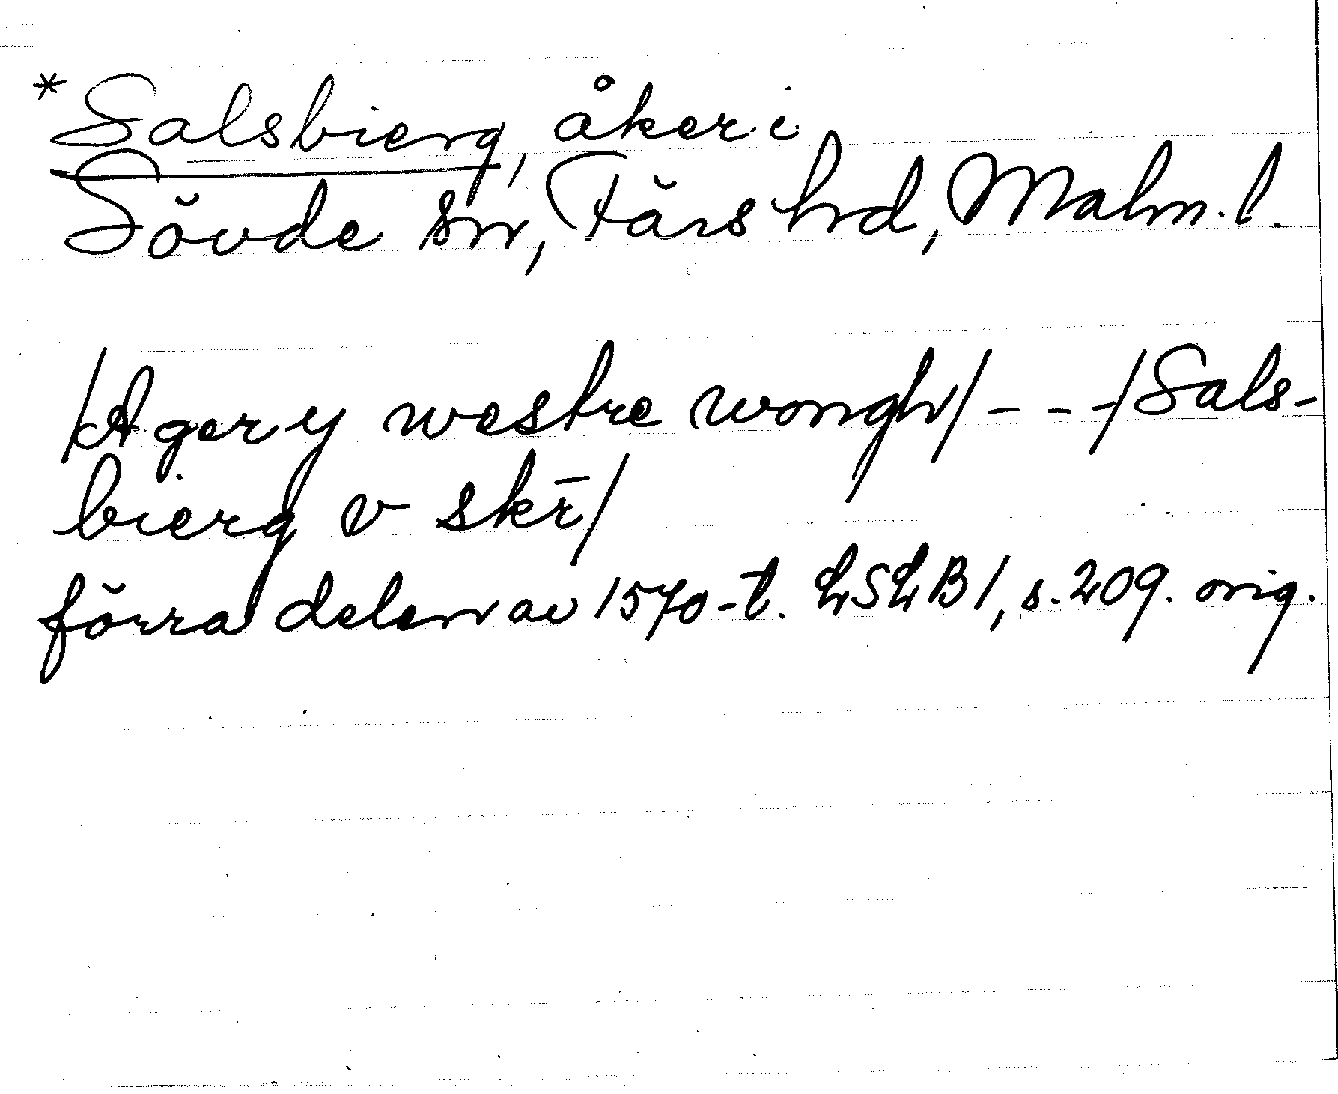 *Salsbierg, åker i
Sövde sn, Färs hd, Malm. l.
/Ager y westre wongh/ - - -/Sals-
bierg v skr̄/
förra delen av 1570-t. LSLB1, s. 209. orig.